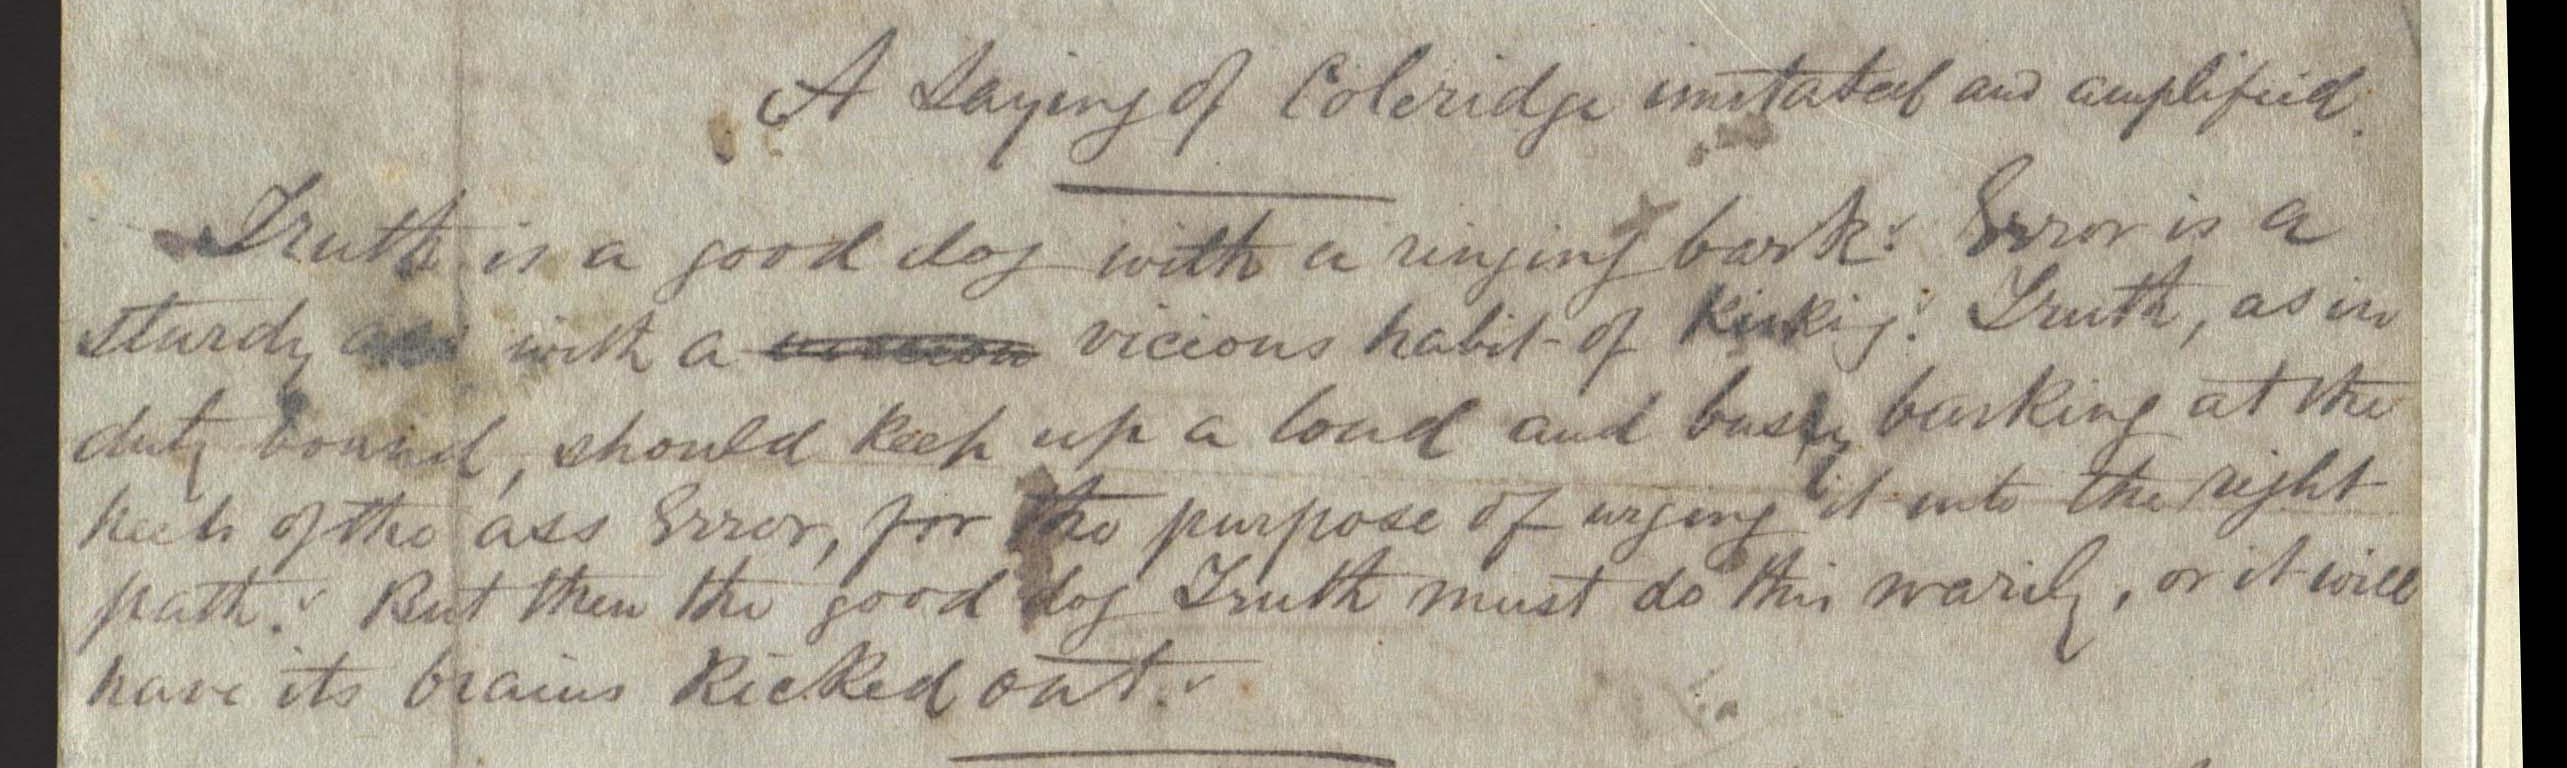 A Saying of Coleridge imitated and amplified.
Truth is a good dog with a ringing bark. Error is a
sturdy ass with a vicious habit of kicking. Truth, as in
duty bound, should keep up a loud and busy barking at the
heels of the ass Error, for the purpose of urging it into the right
path. But then the good dog Truth must do this warily, or it will
have its brains kicked out.